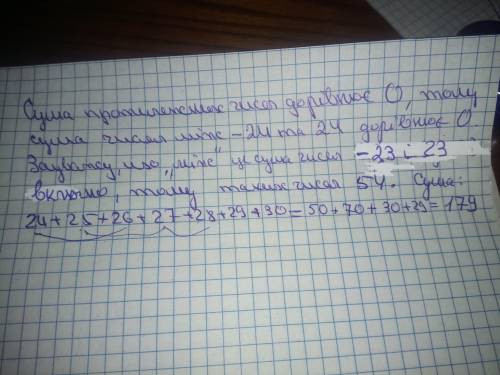 Сума протилежних чисел дорівнює 0, тому
сума чисел між -24 та 24 дорівнює 0
Зауважу, що "між" це сума чисел -23 і 23
включно, тому таких чисел 54. Сума:
24+25+26+27+28+29+30=50+70+30+29=179